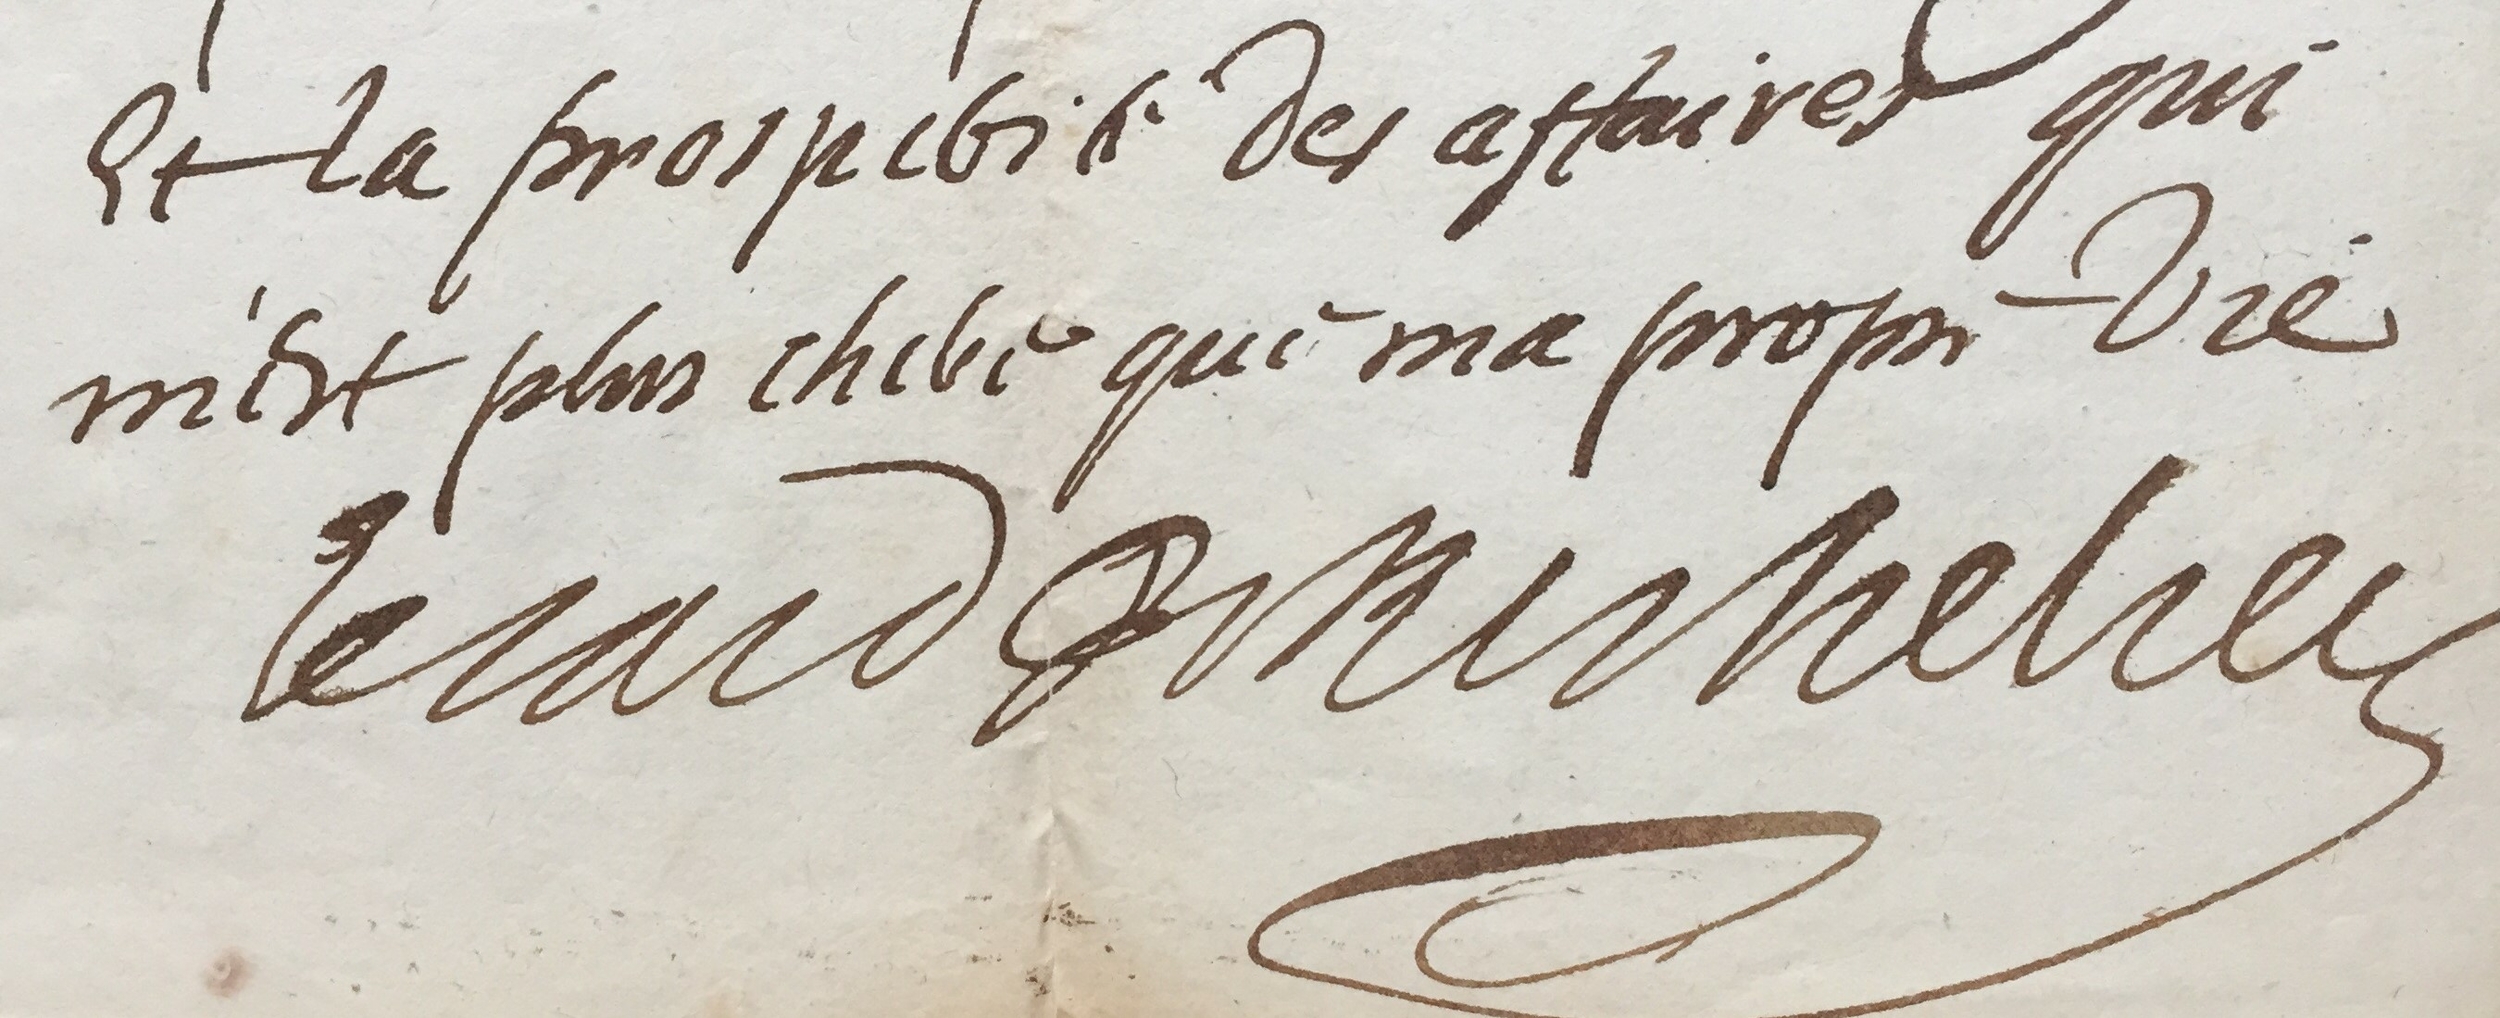 Et la prosperité des affaires qui
m'est plus chere que ma propre vie
le card de Richelieu